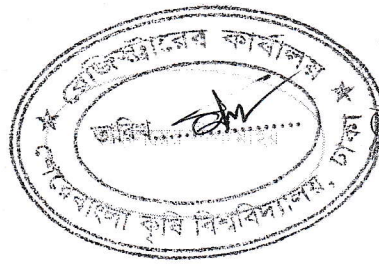 রেজিস্ট্রারের কার্যালয়
তারিখ..................
শেরেবাংলা কৃষি বিশ্ববিদ্যালয়, ঢাকা